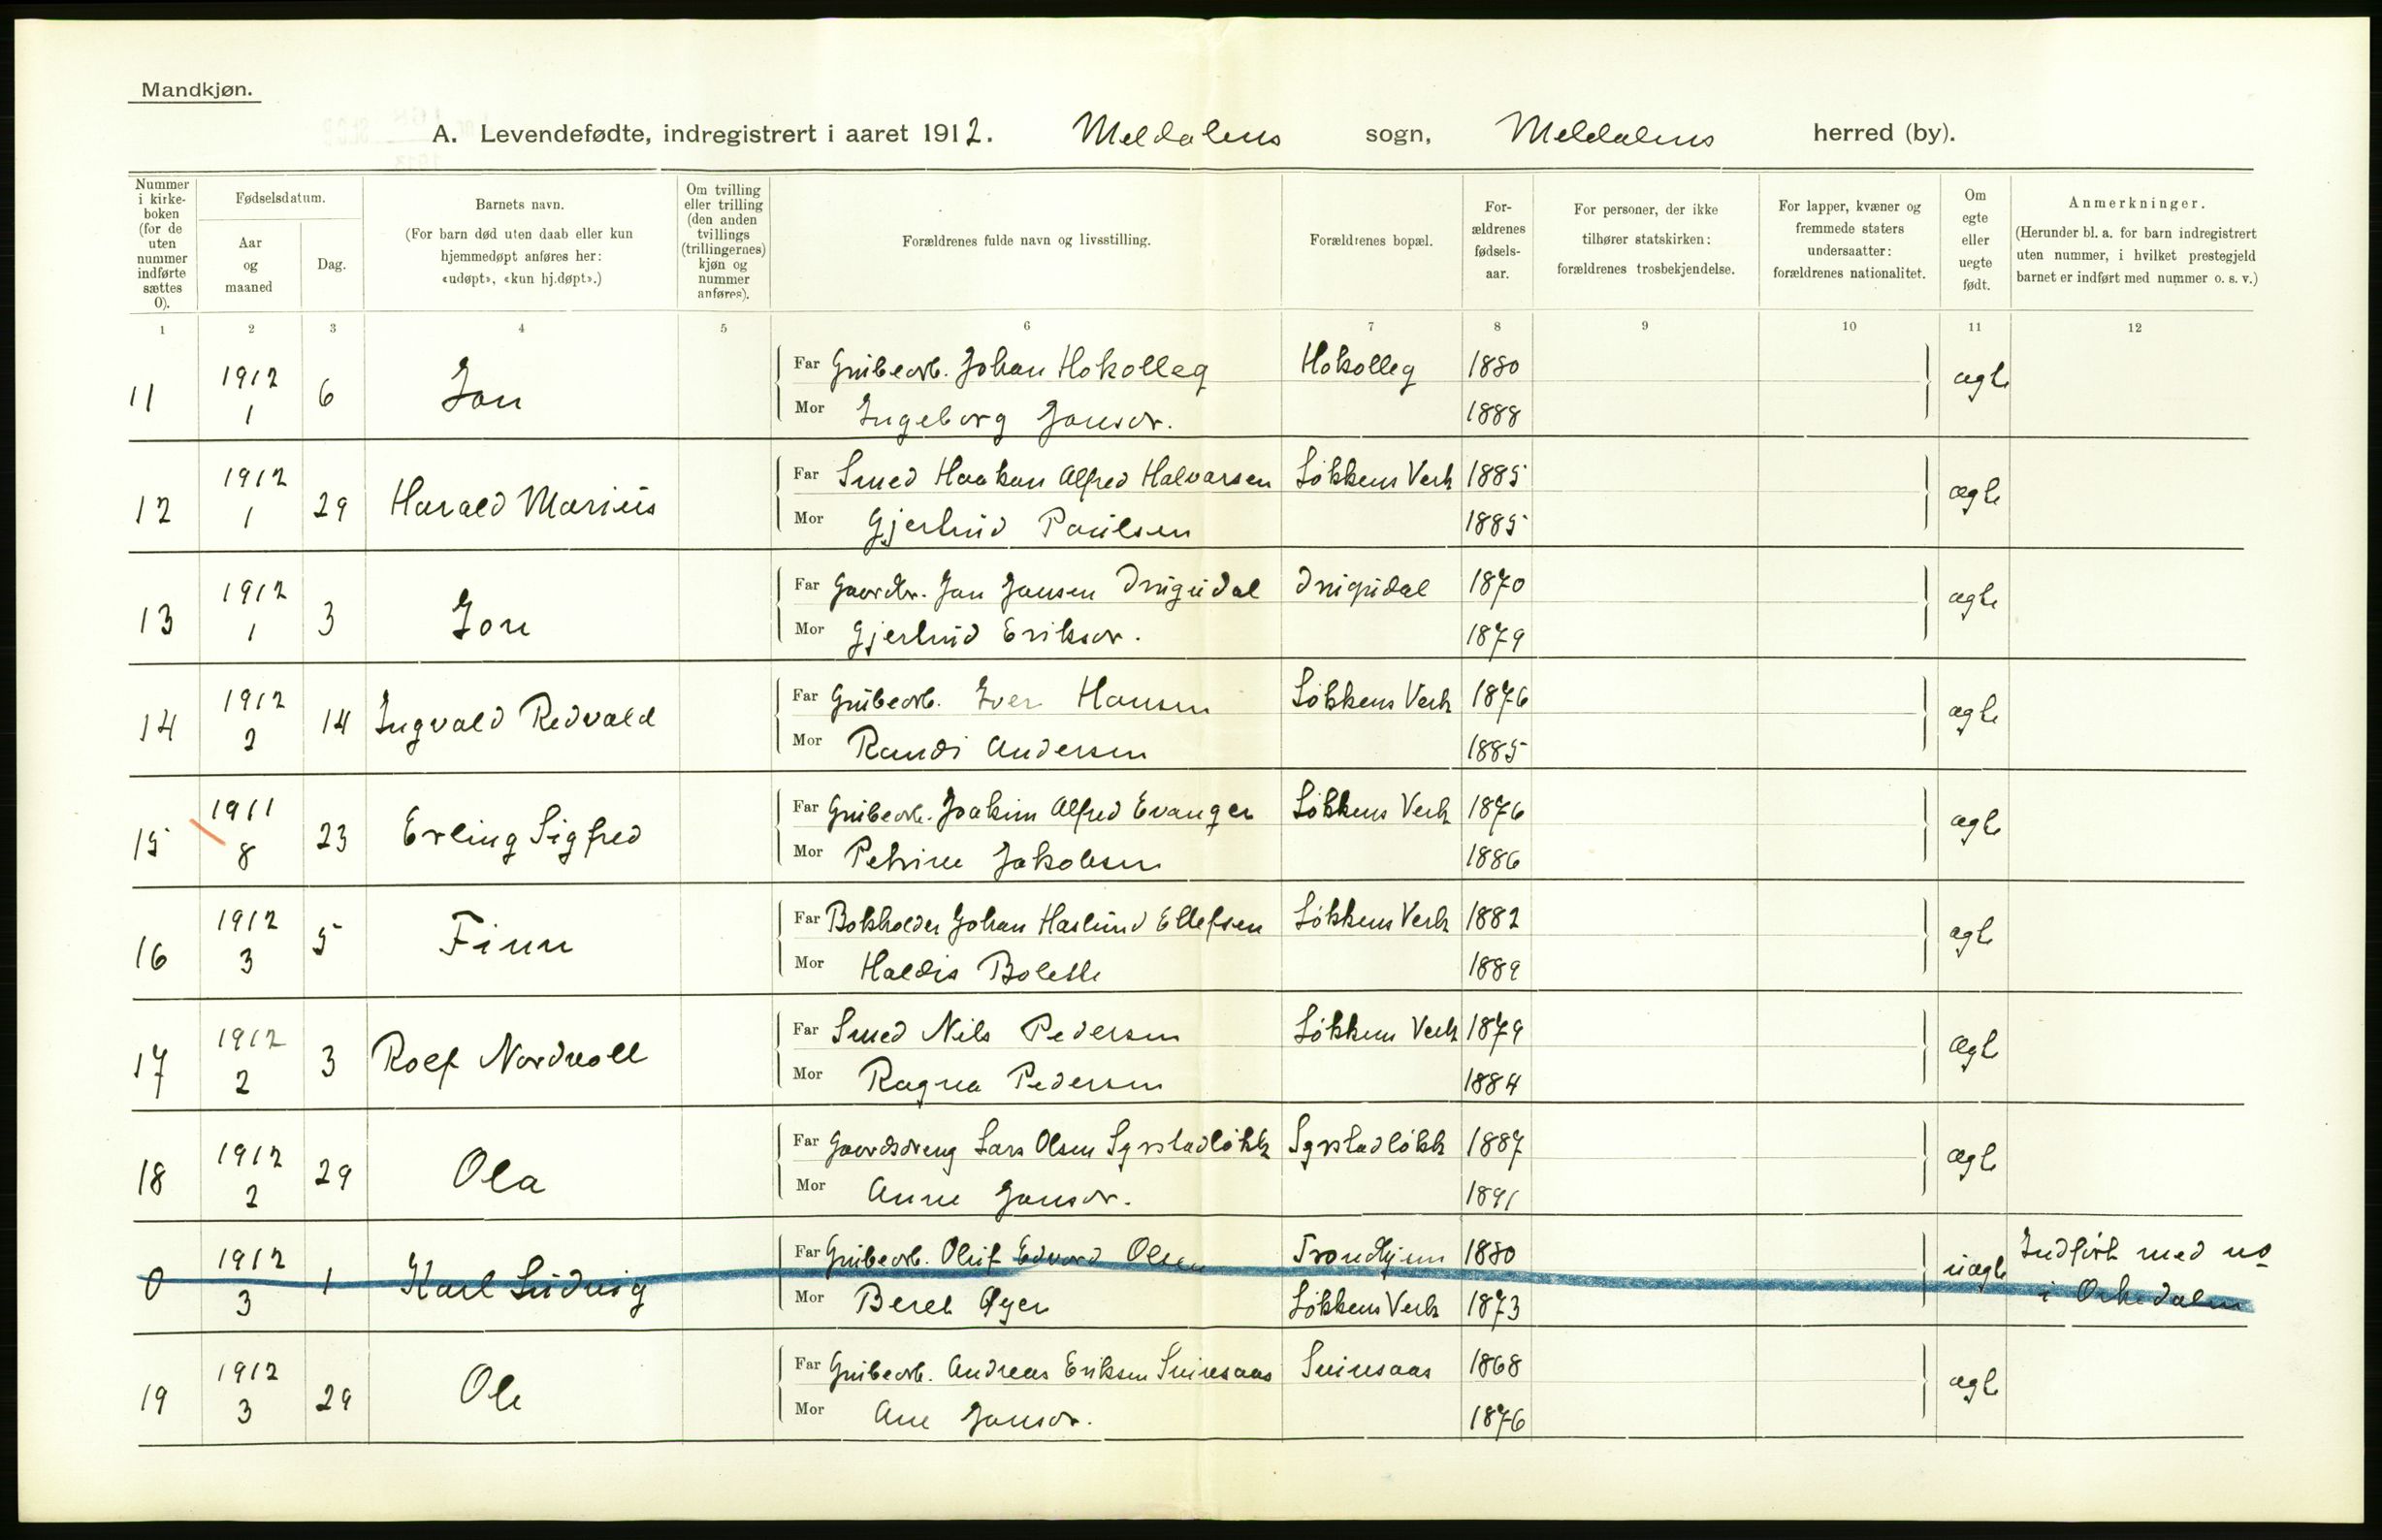 Mandkjøn.
A. Levendefødte, indregistrert i aaret 1912. Meldalens sogn, Meldalens herred (by).
Nummer i kirke- boken (for de uten nummer indførte sættes 0).
Fødselsdatum.
Aar og maaned
Dag.
Barnets navn.
(For barn død uten daab eller kun hjemmedøpt anføres her: «udøpt», «kun hj.døpt».)
Om tvilling eller trilling (den anden tvillings (trillingernes) kjøn og nummer anføres).
Forældrenes fulde navn og livsstilling.
Forældrenes bopæl.
For- ældrenes fødsels- aar.
For personer, der ikke tilhører statskirken: forældrenes trosbekjendelse.
For lapper, kvæner og fremmede staters undersaatter: forældrenes nationalitet.
Om egte eller uegte født.
Anmerkninger.
(Herunder bl. a. for barn indregistrert uten nummer, i hvilket prestegjeld barnet er indført med nummer o. s. v.)
1 2 3 4 5 6 7 8 9 10 11 12
11 1912 1 6 Jon Far Grubearb. Johan Hokolleg Hokolleg 1880 ægte
Mor Ingeborg Jonsdr. 1888
12 1912 1 29 Harald Marius Far Smed Haakon Alfred Halvorsen Løkkens Verk 1885 ægte
Mor Gjertrud Paulsen 1885
13 1912 1 3 Jon Far Gaardbr. Jon Jonsen Drugudal Drugudal 1870 ægte
Mor Gjertrud Eriksdr. 1879
14 1912 2 14 Ingvald Redvald Far Grubearb. Iver Hansen Løkkens Verk 1876 ægte
Mor Randi Andersen 1885
15 1911 8 23 Erling Sigfred Far Grubearb. Joakim Alfred Evanger Løkkens Verk 1876 ægte
Mor Petrine Jakobsen 1886
16 1912 3 5 Finn Far Bokholder Johan Haslund Ellefsen Løkkens Verk 1882 ægte
Mor Haldis Bolette 1889
17 1912 2 3 Rolf Nordvoll Far Smed Nils Pedersen Løkkens Verk 1879 ægte
Mor Ragna Pedersen 1884
18 1912 2 29 Ola Far Gaardsdreng Lars Olsen Syrstadløkk Syrstadløkk 1887 ægte
Mor Anne Jonsdr. 1891
0 1912 3 1 Karl Ludvig Far Grubearb. Oluf Edvard Olsen Trondhjem 1880 uægte Indført med no
Mor Beret Øyen Løkkens Verk 1873 i Orkedalen
19 1912 3 29 Ole Far Grubearb. Andreas Eriksen Svinsaas Svinsaas 1868 ægte
Mor Ane Jonsdr. 1876